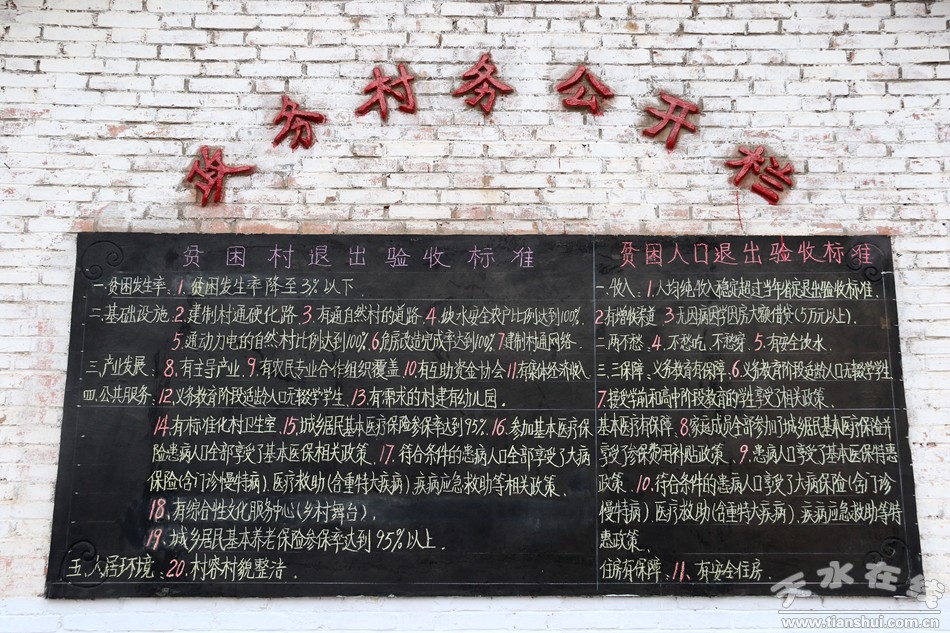 政务村务公开栏
贫困村退出验收标准
一.贫困发生率:1.贫困发生率降至3%以下.
二.基础设施.2.建制村通硬化路.3.有通自然村的道路.4.饮水安全农户比例达到100%.
5.通动力电的自然村比例达到100%.6.危房改造完成率达到100%.7.建制村通网络.
三.产业发展.8.有主导产业.9.有农民专业合作组织覆盖10.有互助资金协会11.有集体经济收入
四.公共服务:12.义务教育阶段适龄人口无辍学学生.13.有需求的村建有幼儿园.
14.有标准化村卫生室.15.城乡居民基本医疗保险参保率达到95%.16.参加基本医疗保
险患病人口全部享受了基本医保相关政策.17.符合条件的患病人口全部享受了大病
保险(含门诊慢特病).医疗救助(含重特大疾病).疾病应急救助等相关政策.
18.有综合性文化服务中心(乡村舞台).
19.城乡居民基本养老保险参保率达到95%以上.
五.人居环境:20.村容村貌整洁.
贫困人口退出验收标准
一.收入.1.人均纯收入稳定超过当年稳定退出验收标准.
2.有增收渠道 3.无因病因学因房大额借贷(5万元以上).
二.两不愁.4.不愁吃.不愁穿.5.有安全饮水.
三.三保障.义务教育有保障.6.义务教育阶段适龄人口无辍学学生.
7.接受学前和高中阶段教育的学生享受了相关政策.
基本医疗有保障.8.家庭成员全部参加了城乡居民基本医疗保险并
享受了参保费用补贴政策.9.患病人口享受了基本医保特惠
政策.10.符合条件的患病人口享受了大病保险(含门诊
慢特病).医疗救助(含重特大疾病).疾病应急救助等特
惠政策.
住房有保障.11.有安全住房.
天水在线
www.tianshui.com.cn